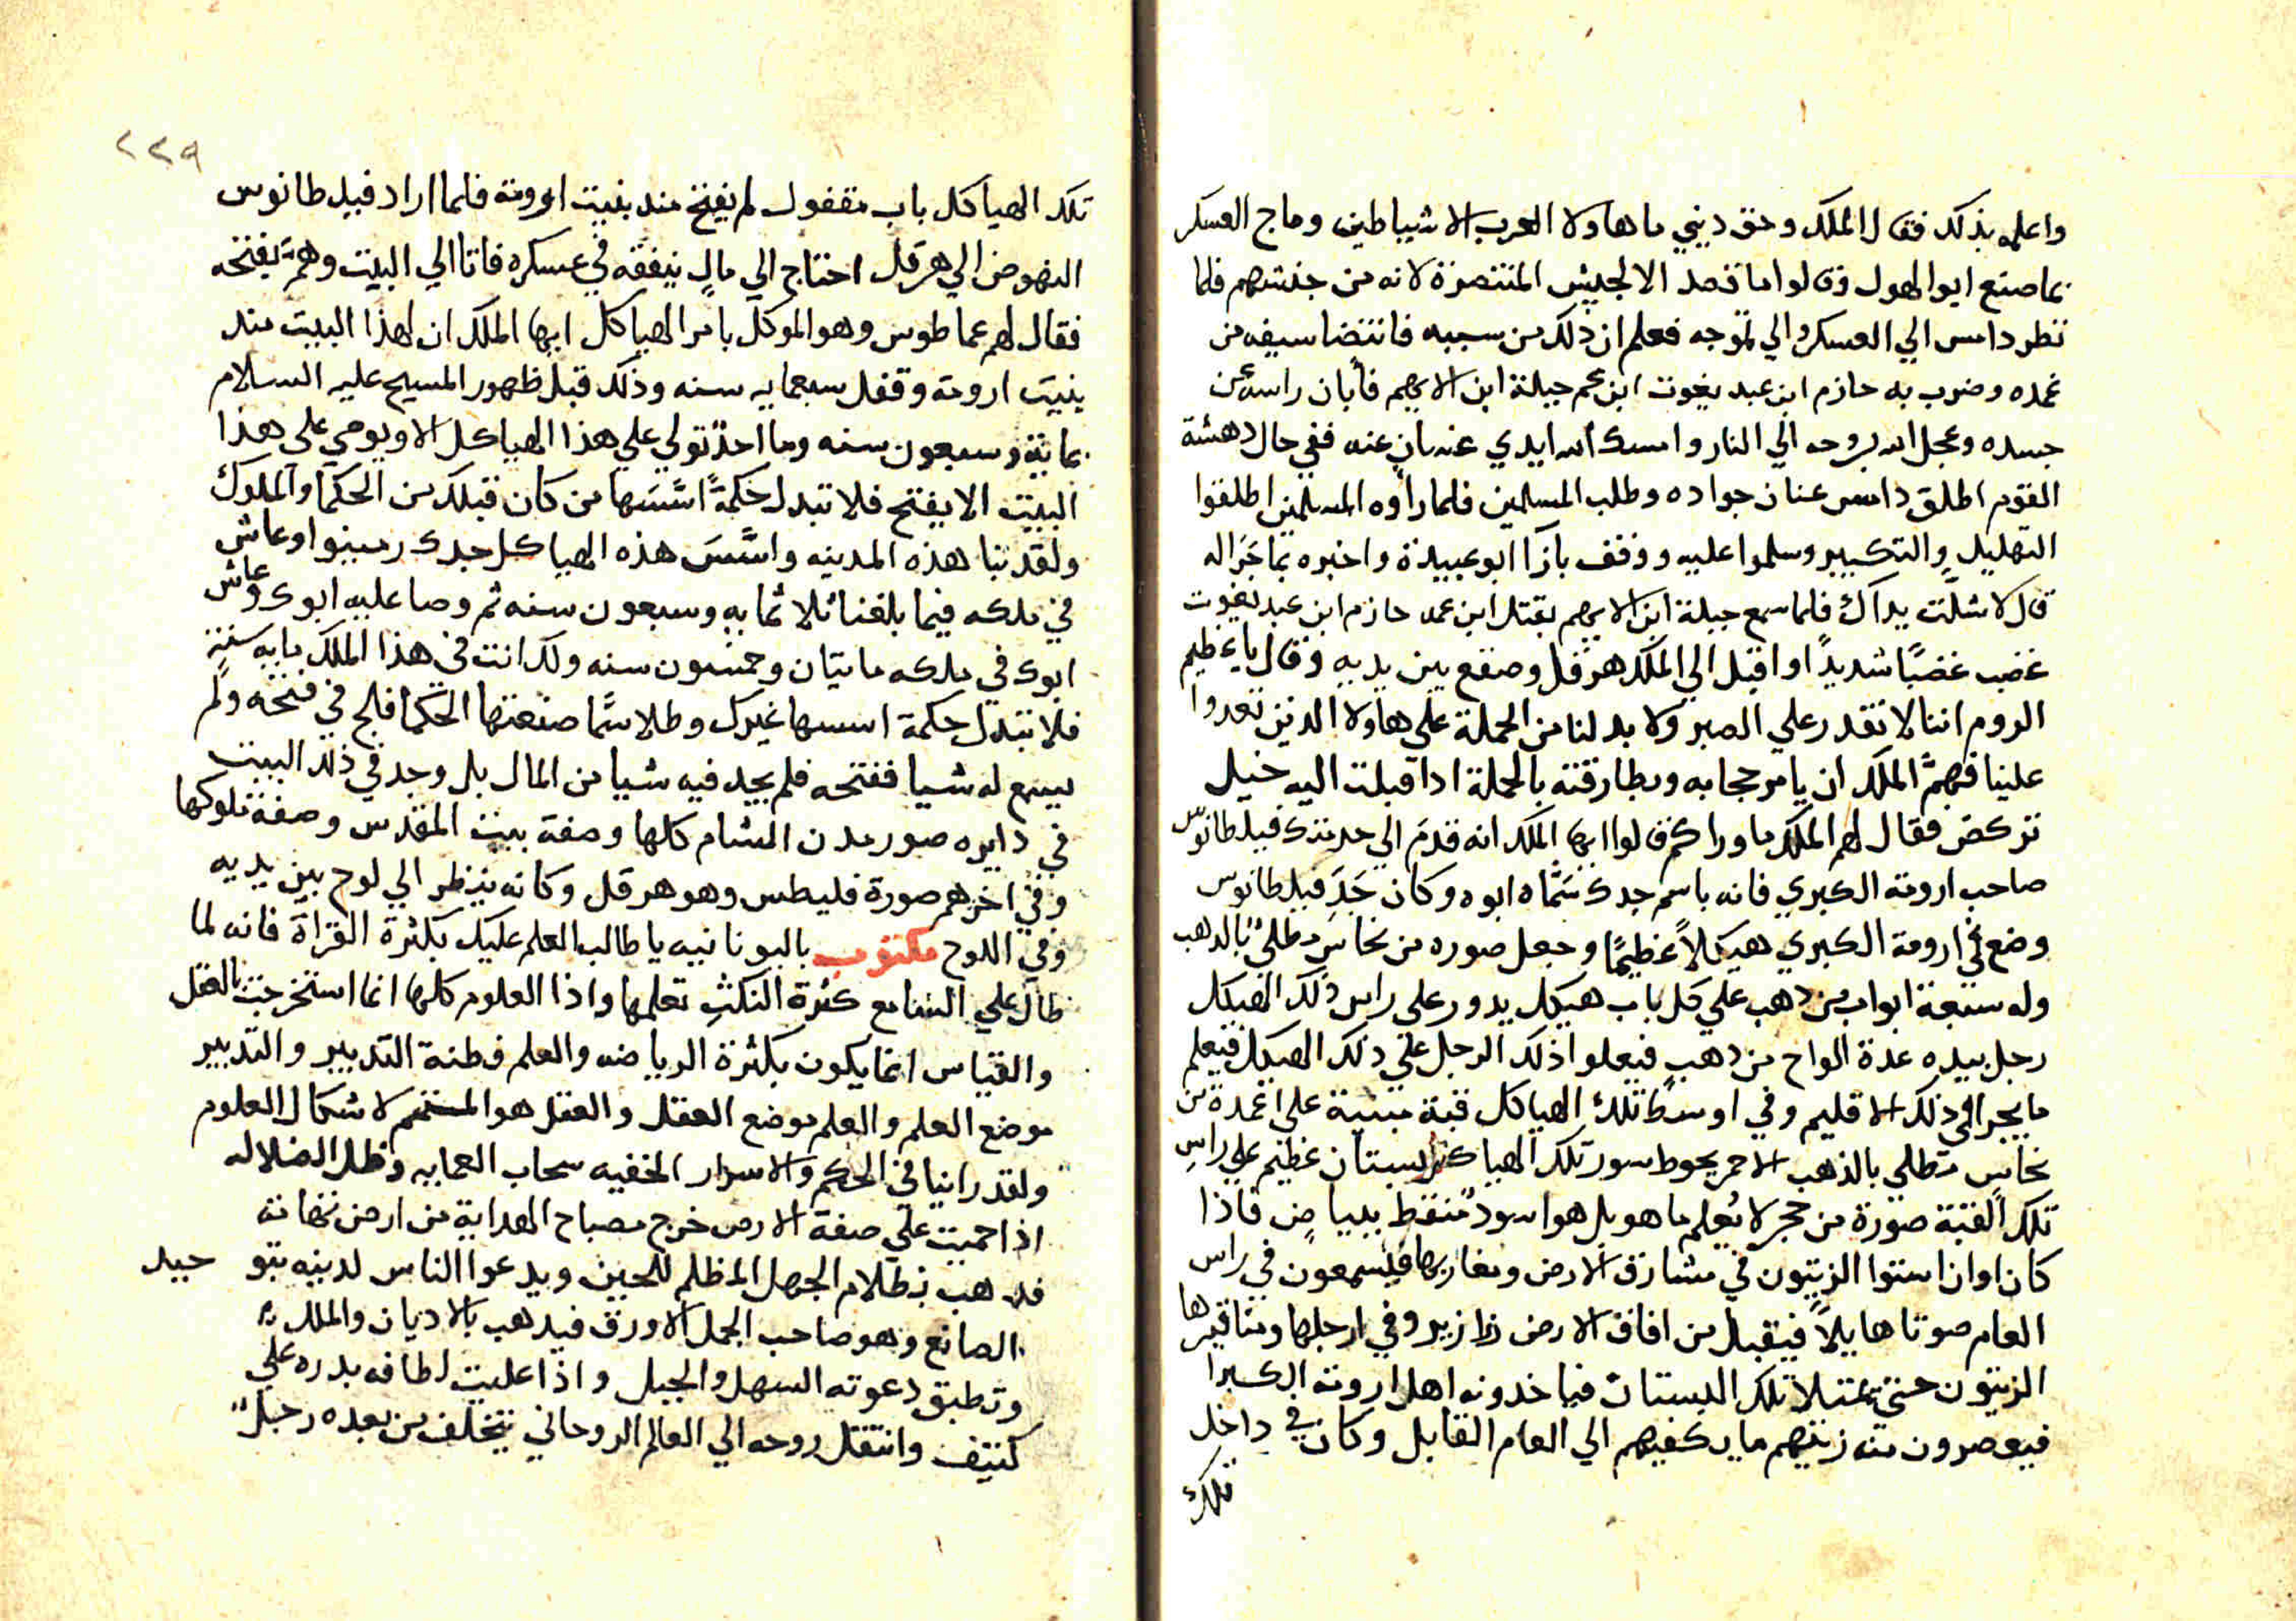 واعلمه بذلك فقال الملك وحق ديني ما هاولا العرب الا شياطين وماج العسكر
بما صنع ابوا الهول وقالوا ما قصد الا لجيش المتنصرة لانه من جنسهم فلما
نظر دامس الي العسكر والي تموجه فعلم ان ذلك من سببه فانتضا سيفه من
غمده وضرب به حازم ابن عبد يغوث ابن عم جبلة ابن الايهم فأبان راسه عن
جسده وعجل الله بروحه الي النار وامسك الله ايدي عنه بان عنه ففي حال دهشة
القوم اطلق دامس عنان جواده وطلب المسلمين فلما رأوه المسلمين اطلقوا
التهليل والتكبير وسلموا عليه ووقف بازا ابو عبيدة واخبره بما جرا له
قال لا شلت يداك فلما سمع جبلة ابن الايهم بقتل ابن عمه حازم ابن عبد يغوث
غضب غضبًا شديدًا واقبل الي الملك هرقل وصقع بين يديه وقال يا عظيم
الروم اننا لا نقدر علي الصبر ولا بد لنا من الحملة علي هاولا الذين تعدوا
علينا فهمّ الملك ان يامر حجابه وبطارقته بالحملة اذا قبلت اليه خيل
تركض فقال لهم الملك ما وراكم قالوا ايها الملك انه قدم الي خدمتك فيلطانوس
صاحب ارومة الكبري فانه باسم جدك سمّاه ابوه وكان جد فيلطانوس
وضع في ارومة الكبري هيكلاً عظيمًا وجعل صوره من نحاس مطلي بالذهب
وله سبعة ابواب من ذهب علي كل باب هيكل يدور علي راس ذلك الهيكل
رجل بيده عدة الواح من ذهب فيعلوا ذلك الرجل علي ذلك الهيكل فيعلم
ما يجرا في ذلك الاقليم وفي اوسط تلك الهياكل قبة مبنية علي اعمدة من
نحاس مطلي بالذهب الاحمر يحوط سور تلك الهياكل بستان عظيم علي راس
تلك القبة صورة من حجر لا يعلم ما هو بل هو اسود منقط ببياض فاذا
كان اوان استوا الزيتون في مشارق الارض ومغاربها فيسمعون في راس
العام صوتا هايلاً فيقبل من افاق الارض زرازير وفي ارجلها ومناقيرها
الزيتون حتي تمتلا تلك البستان فياخدونه اهل ارومة الكبرا
فيعصرون منه زيتهم ما يكفيهم الي العام القابل وكان في داخل
تلك
٢٢٩
تلك الهياكل باب مقفول لم يفتح منذ بنيت ارومة فلما اراد فيلطانوس
النهوض الي هرقل احتاج الي مال ينفقه في عسكره فاتا الي البيت وهمّ يفتحه
فقال لهم عماطوس وهو الموكل بامر الهياكل ايها الملك ان لهذا البيت منذ
بنيت ارومة وقفل سبعمايه سنه وذلك قبل ظهور المسيح عليه السلام
بماية وسبعون سنه وما احد تولي علي هذا الهياكل الا ويوصي علي هذا
البيت الا يفتح فلا تبدل حكمةً اسّسها من كان قبلك من الحكما والملوك
ولقد بنا هذه المدينه واسّس هذه الهياكل جدك رمينوا وعاش
في ملكه فيما بلغنا ثلاثمايه وسبعون سنه ثم وصا عليه ابوك وعاش
ابوك في ملكه مايتان وخمسون سنه ولك انت في هذا الملك مايه سنة
فلا تبدل حكمة اسسها غيرك وطلاسمًا صنعتها الحكما فلج في فتحه ولم
يسمع له شيا ففتحه فلم يجد فيه شيا من المال بل وجد في ذلك البيت
في دايره صور مدن الشام كلها وصفة بيت المقدس وصفة ملوكها
وفي اخرهم صورة فليطس وهو هرقل وكانه ينظر الي لوح بين يديه
وفي اللوح مكتوب باليونانيه يا طالب العلم عليك بكثرة القراة فانه لما
طال علي السامع كثرة النكث تعلمها واذا العلوم كلها انما استخرجت بالعقل
والقياس انما يكون بكثرة الرياضه والعلم فطنة التدبير والتدبير
موضع العلم والعلم موضع العقل والعقل هو المستمم لاشكال العلوم
ولقد رانيا في الحكم والاسرار الخفيه سحاب العمايه وظلم الضلاله
اذا حميت علي صفة الارض خرج مصباح الهداية من ارض تهامة
فدهب بظلام الجهل المظلم للحين ويدعوا الناس لدينه بتوحيد
الصانع وهو صاحب الجمل الاورق فيدهب بالاديان والملل
وتطبق دعوته السهل والجبل واذا عليت لطافه بدره علي
كتيف وانتقل روحه الي العالم الروحاني يتخلف من بعده رجل